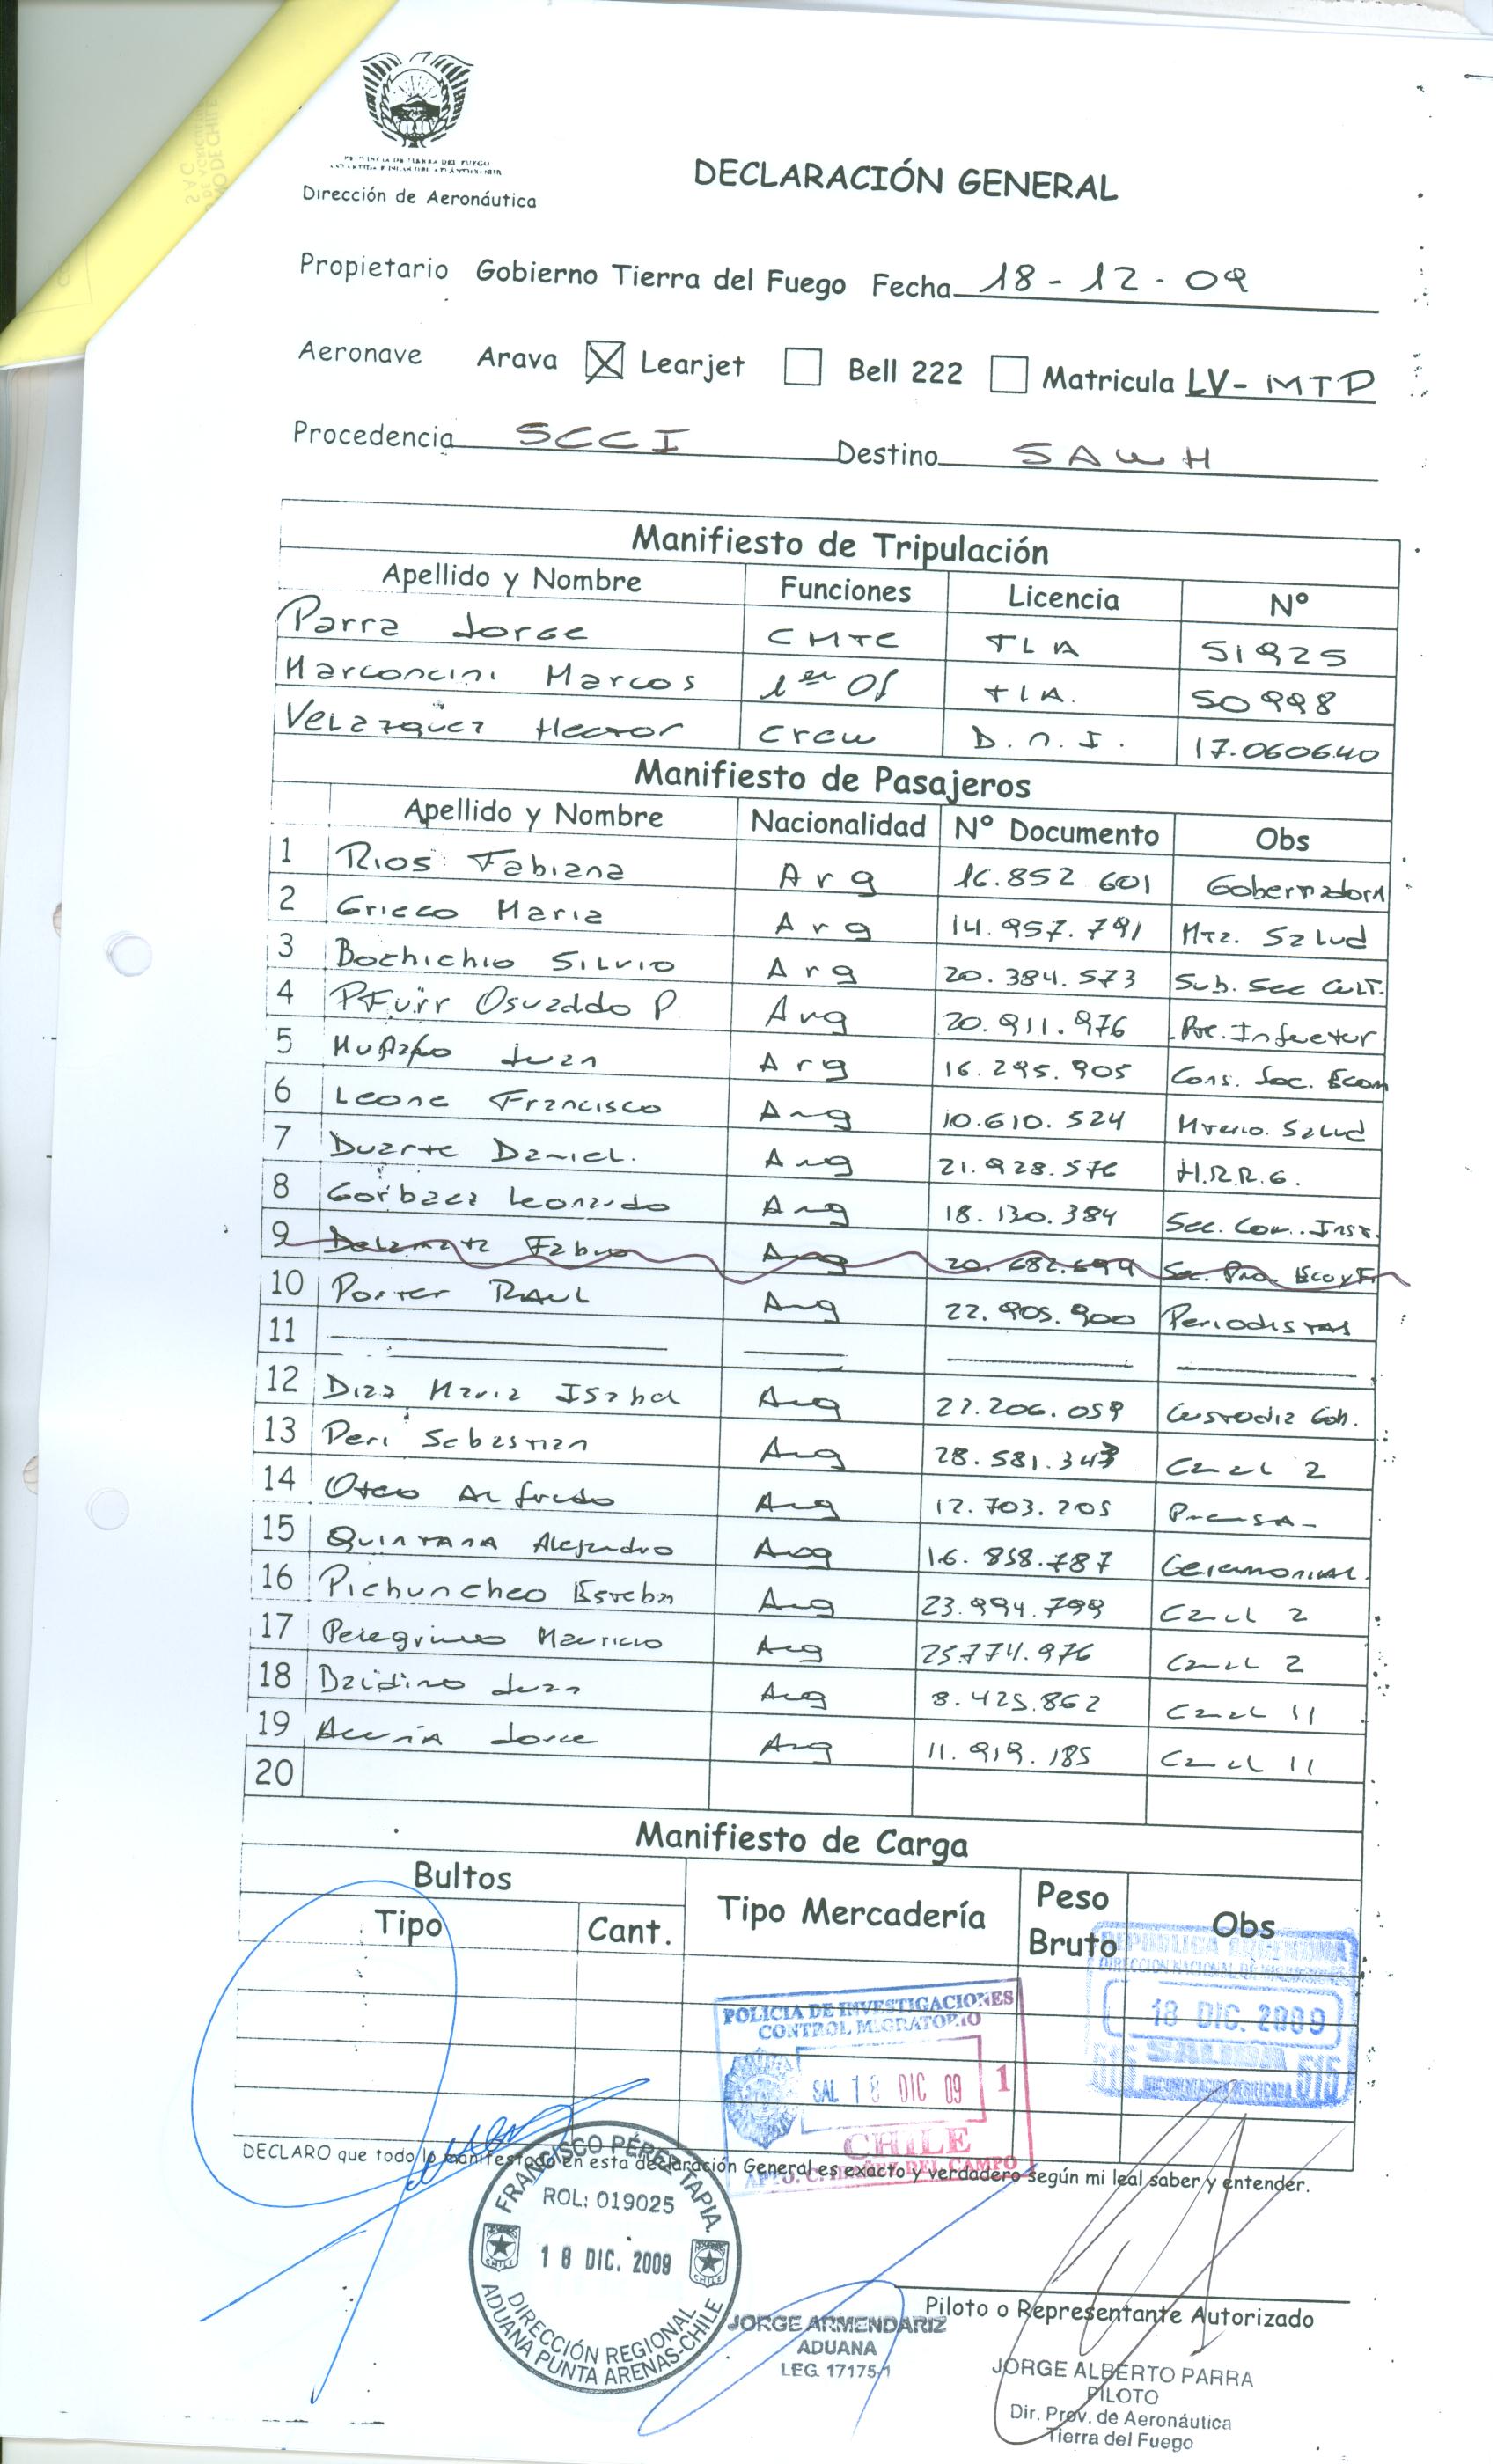 PROVINCIA DE TIERRA DEL FUEGO
Dirección de Aeronáutica
DECLARACIÓN GENERAL
Propietario Gobierno Tierra del Fuego Fecha 18-12-09
Aeronave Arava Learjet Bell 222 Matricula LV- MTP
Procedencia SCCI Destino SAWH
Manifiesto de Tripulación
Apellido y Nombre Funciones Licencia Nº
Parra Jorge CMTE TLA 51925
Marconcini Marcos 1er Of TLA. 50998
Velazquez Hector Crew D.N.I. 17.060640
Manifiesto de Pasajeros
Apellido y Nombre Nacionalidad Nº Documento Obs
1 Rios Fabiana Arg 16.852 601 Gobernadora
2 Grieco Maria Arg 14.957.791 Mtz. Salud
3 Bochichio Silvio Arg 20.384.573 Sub. Sec Cult.
4 PFurr Osvaldo P Arg 20.911.976
5 Juan Arg 16.295.905 Cons. Soc. Econ
6 Leone Francisco Arg 10.610.524 Salud
7 Duarte Daniel. Arg 21.928.576 H.R.R.G.
8 Gorbacz Leonardo Arg 18.130.384 Sec. Con. Inst.
9 Arg 20.682.694 Sec.
10 Porter RAUL Arg 22.905.900 Periodistas
11
12 Diaz Maria Isabel Arg 22.206.059 Custodia Gob.
13 Peri Sebastian Arg 28.581.343 Canal 2
14 Otero Alfredo Arg 12.703.205 Prensa
15 Quintana Alejandro Arg 16.858.787 Ceremonial.
16 Pichuncheo Esteban Arg 23.994.799 Canal 2
17 Peregrino Mauricio Arg 25.774.976 Canal 2
18 Juan Arg 8.425.862 Canal 11
19 Acuña Jorge Arg 11.919.185 Canal 11
20
Manifiesto de Carga
Bultos Tipo Mercadería Peso Bruto Obs
Tipo Cant.
REPUBLICA ARGENTINA
DIRECCION NACIONAL DE MIGRACIONES
18 DIC. 2009
SALIDA
615 615
POLICIA DE INVESTIGACIONES
CONTROL MIGRATORIO
SAL 18 DIC 09 1
CHILE
APTO. C. IBAÑEZ DEL CAMPO
DECLARO que todo lo manifestado en esta declaración General es exacto y verdadero según mi leal saber y entender.
FRANCISCO PÉREZ TAPIA
ROL: 019025
CHILE CHILE
18 DIC. 2009
DIRECCIÓN REGIONAL
ADUANA PUNTA ARENAS-CHILE
JORGE ARMENDARIZ
ADUANA
LEG. 17175-1
Piloto o Representante Autorizado
JORGE ALBERTO PARRA
PILOTO
Dir. Prov. de Aeronáutica
Tierra del Fuego